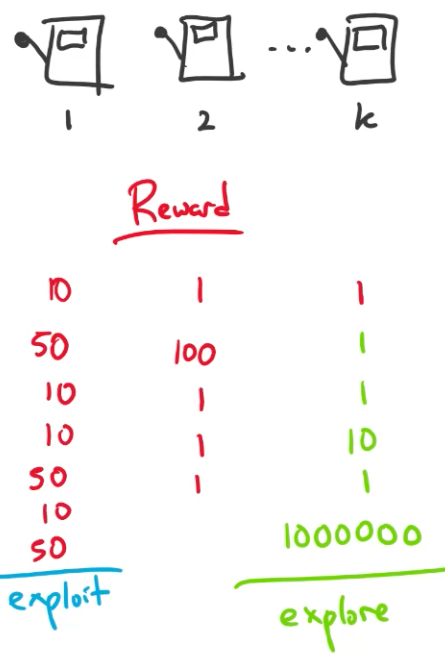 1 2 ... k
Reward
10 1 1
50 100 1
10 1 1
10 1 10
50 1 1
10
50 1000000
exploit explore